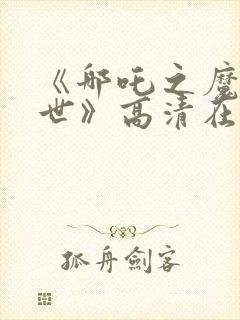 《哪吒之魔
世》高清在
孤舟劍客